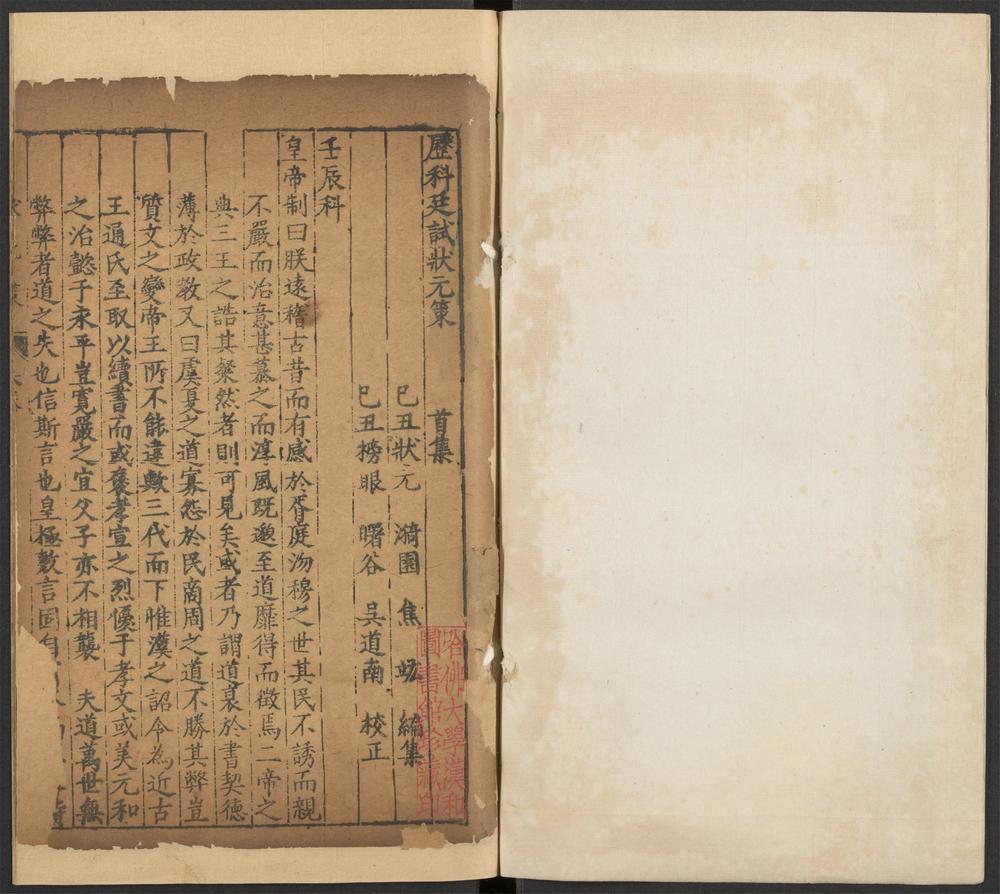 歷科廷試狀元策 首集
巳丑狀元 漪園 焦竑 編集
巳丑榜眼 曙谷 吳道南 校正
壬辰科
皇帝制曰朕遠稽古昔而有感於胥庭沕穆之世其民不誘而親
不嚴而治意甚慕之而淳風既邈至道靡得而徵焉二帝之
典三王之誥其粲然者則可見矣或者乃謂道衰於書契德
薄於政教又曰虞夏之道寡怨於民商周之道不勝其弊豈
質文之變帝王所不能違歟三代而下惟漢之詔令為近古
王通氏至取以續書而或褒孝宣之烈優于孝文或美元和
之治懿于永平豈寬嚴之宜父子亦不相襲 夫道萬世無
弊弊者道之失也信斯言也皇極敷言固自
哈佛大學漢和
圖書館珍藏印